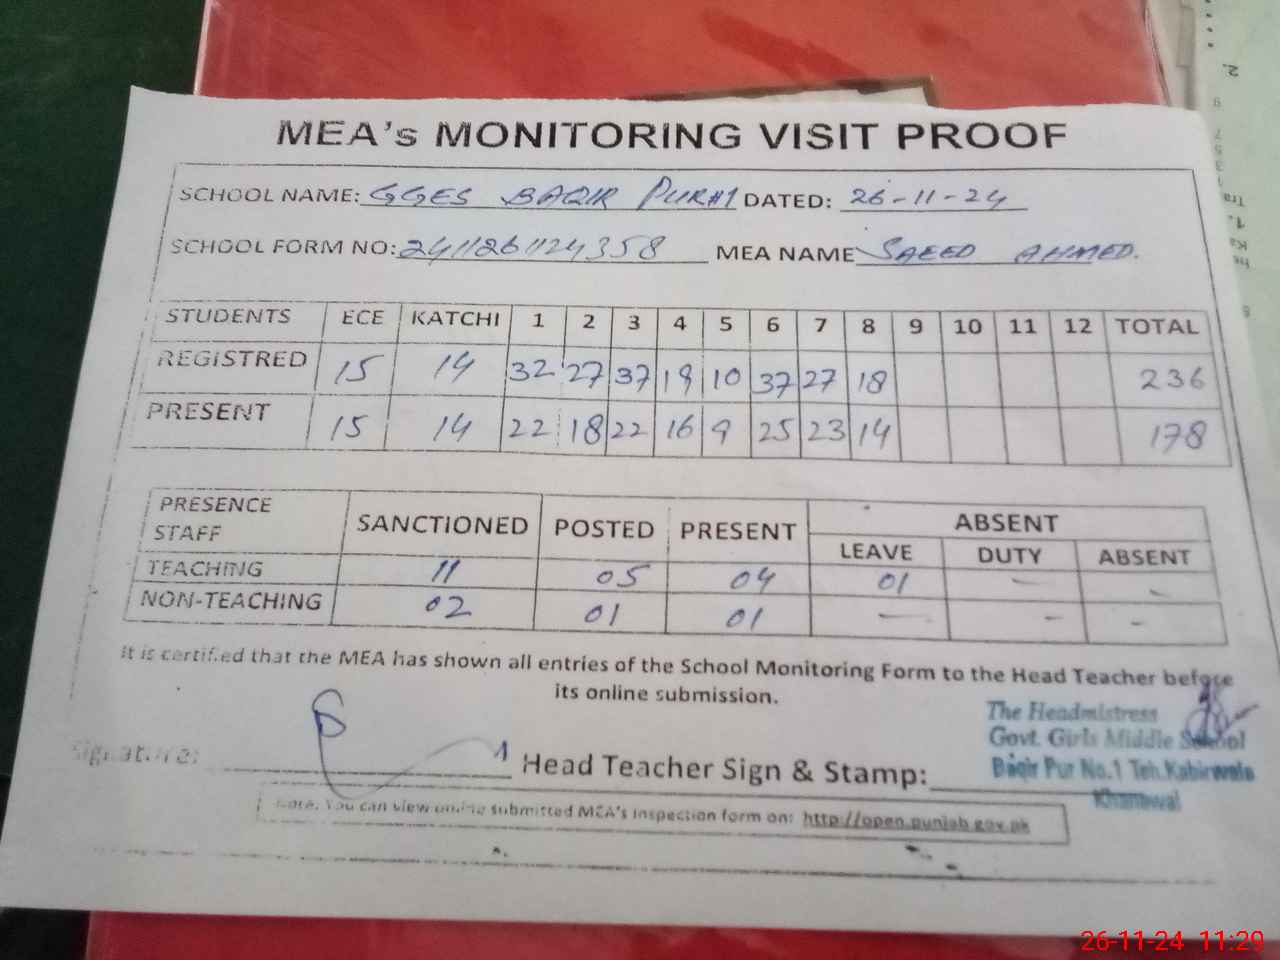 MEA's MONITORING VISIT PROOF
SCHOOL NAME: GGES BAQIR PUR#1 DATED: 26-11-24
SCHOOL FORM NO: 2411261124358 MEA NAME SAEED AHMED.
STUDENTS ECE KATCHI 1 2 3 4 5 6 7 8 9 10 11 12 TOTAL
REGISTRED 15 14 32 27 37 19 10 37 27 18 236
PRESENT 15 14 22 18 22 16 9 25 23 14 178
PRESENCE STAFF SANCTIONED POSTED PRESENT ABSENT
LEAVE DUTY ABSENT
TEACHING 11 05 04 01 - -
NON-TEACHING 02 01 01 - - -
It is certified that the MEA has shown all entries of the School Monitoring Form to the Head Teacher before
its online submission.
The Headmistress
Govt. Girls Middle School
Baqir Pur No.1 Teh.Kabirwala
Khanewal
Signature: Head Teacher Sign & Stamp:
Note: You can view online submitted MEA's inspection form on: http://open.punjab.gov.pk
26-11-24 11:29